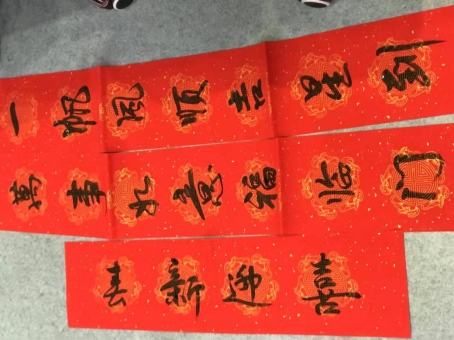 一帆风顺吉星到
萬事如意福临门
喜迎新春